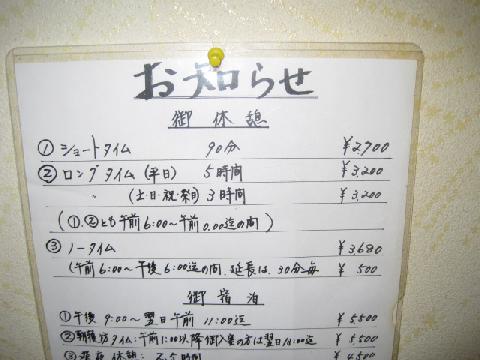 お知らせ
御休憩
① ショートタイム 90分 ¥2,700
② ロングタイム (平日) 5時間 ¥3,200
〃 (土日・祝・祭日) 3時間 ¥3,200
(①.②とも午前6:00〜午前0.00迄の間)
③ ノータイム ¥3,680
(午前6:00〜午後6:00迄の間.延長は.30分毎 ¥500
御宿泊
①午後 9:00〜翌日午前 11:00迄 ¥5500
タイム:午前1:00以降御入室の方は翌日 ¥5,500
休憩: 2.5時間 ¥4,500